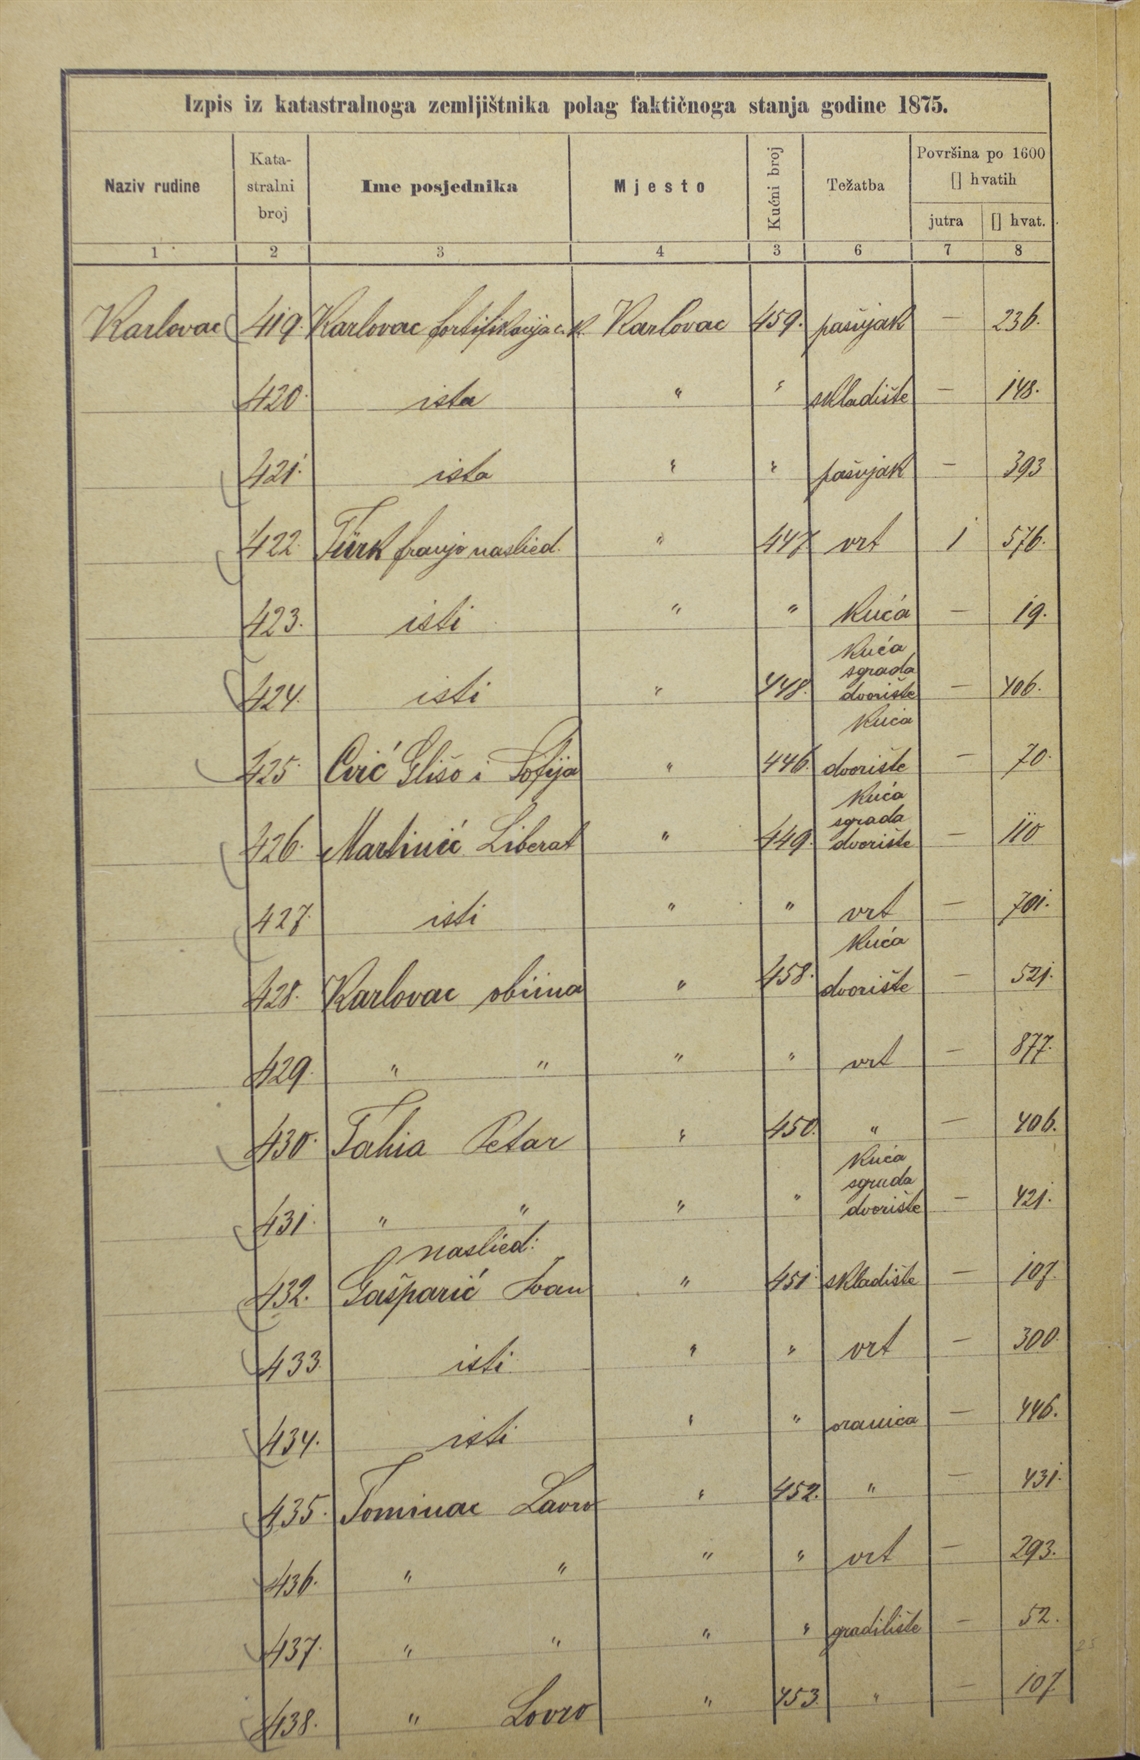 Izpis iz katastralnoga zemljištnika polag faktičnoga stanja godine 1875.
Naziv rudine Kata-stralni broj Ime posjednika Mjesto Kućni broj Težatba Površina po 1600 [] hvatih
jutra [] hvat.
1 2 3 4 3 6 7 8
Karlovac 419. Karlovac fortifikacija c. k. Karlovac 459. pašnjak — 236.
420. ista " " skladište — 148.
421. ista " " pašnjak — 393
422. Türk Franjo naslied. " 447 vrt 1 576.
423. isti " " Kuća — 19.
424. isti " 448. Kuća sgrada dvorište — 406.
425. Cvić Glišo i Sofija " 446. Kuća dvorište — 70.
426. Martinić Liberat " 449. Kuća sgrada dvorište — 110
427. isti " " vrt — 701.
428. Karlovac obćina " 458. Kuća dvorište — 521.
429. " " " " vrt — 877.
430. Petar " 450. " — 406.
431. " " " " Kuća sgrada dvorište — 421.
naslied:
432. Gašparić Ivan " 451 skladište — 107.
433. isti " " vrt — 300.
434. isti " " oranica — 446.
435. Tominac Lavro " 452. " — 431.
436. " " " " vrt — 293.
437. " " " " gradilište — 52.
438. " Lovro " 453. " — 107